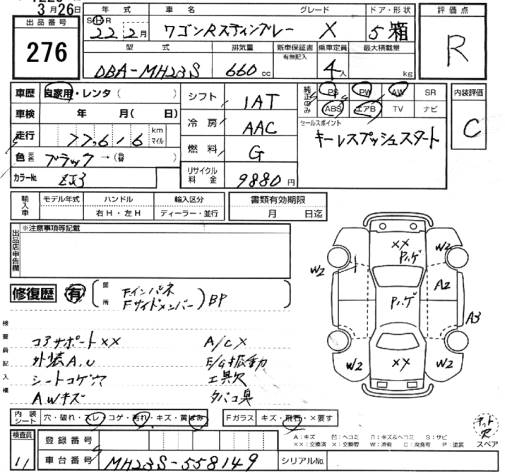 3月26日
出品番号
276
年式 車名 グレード ドア・形状
SH 22 年 2 月 ワゴンRスティングレー X 5箱
型式 排気量 新車保証書 有無記入 乗車定員 最大積載量
DBA-MH23S 660 cc 4人 kg
評価点
R
内装評価
C
車歴 自家用・レンタ( )
車検 年 月( 日)
走行 77,616 km マイル
色 ブラック→(替 )
カラーNo. ZJ3
シフト 1AT
冷房 AAC
燃料 G
リサイクル料金 9880円
純正のみ PS PW AW SR
ABS エアB TV ナビ
セールスポイント
キーレスプッシュスタート
輸入車 モデル年式 ハンドル 輸入区分
右H・左H ディーラー・並行
書類有効期限
月 日迄
出品店申告欄
※注意事項等記載
修復歴 有
箇所 Fインパネ
Fサイドメンバー) BP
検査員記入欄
コアサポートXX A/CX
外装A,U E/G振動
シートコゲ穴 工具欠
AWキズ タバコ臭
XX
Pハゲ
Pハゲ
XX
W2
W2
W2
A2
A3
W2
W2
内装シート 穴・破れ・スレ・コゲ・汚れ・キズ・黄ばみ Fガラス キズ・飛石・×要す
検査員
11
登録番号
車台番号 MH23S-558149 シリアルNo.
A:キズ
××:交換済 ×:要交換
スペア